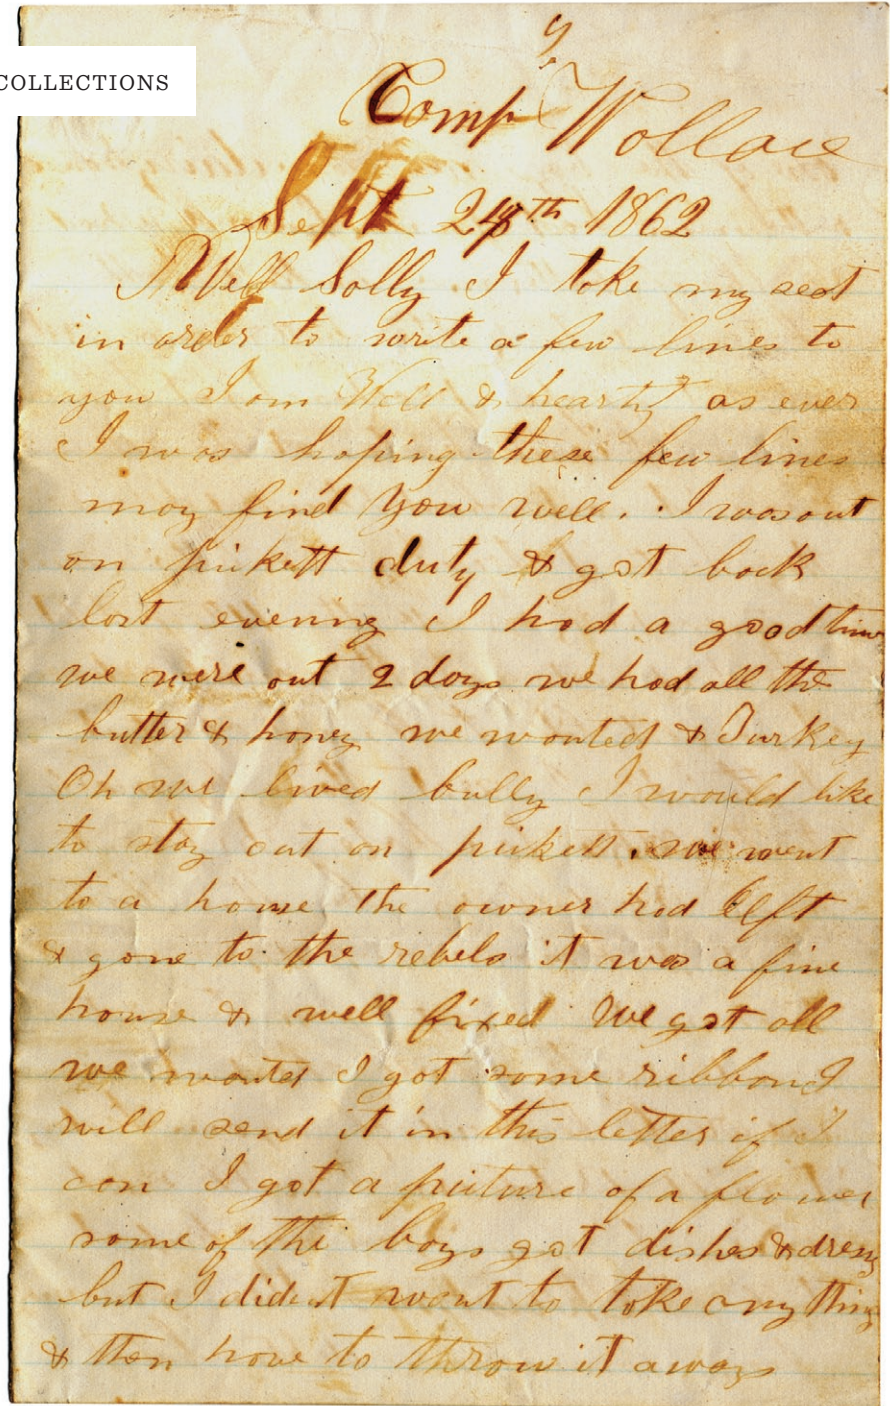 COLLECTIONS
Camp Wallace
Sept 28th 1862
Well Solly I take my seat
in order to write a few lines to
you I am Well & hearty as ever
I was hoping these few lines
may find you well. I was out
on pickett duty & got back
last evening I had a good time
we were out 2 days we had all the
butter & honey we wanted & Turkey
Oh we lived bully I would like
to stay out on pickett. we went
to a house the owner had left
& gone to the rebels it was a fine
house & well fixed We got all
we wanted I got some ribbon I
will send it in this letter if I
can I got a picture of a flower
some of the boys got dishes &
but I didnt want to take any thing
& then have to throw it away